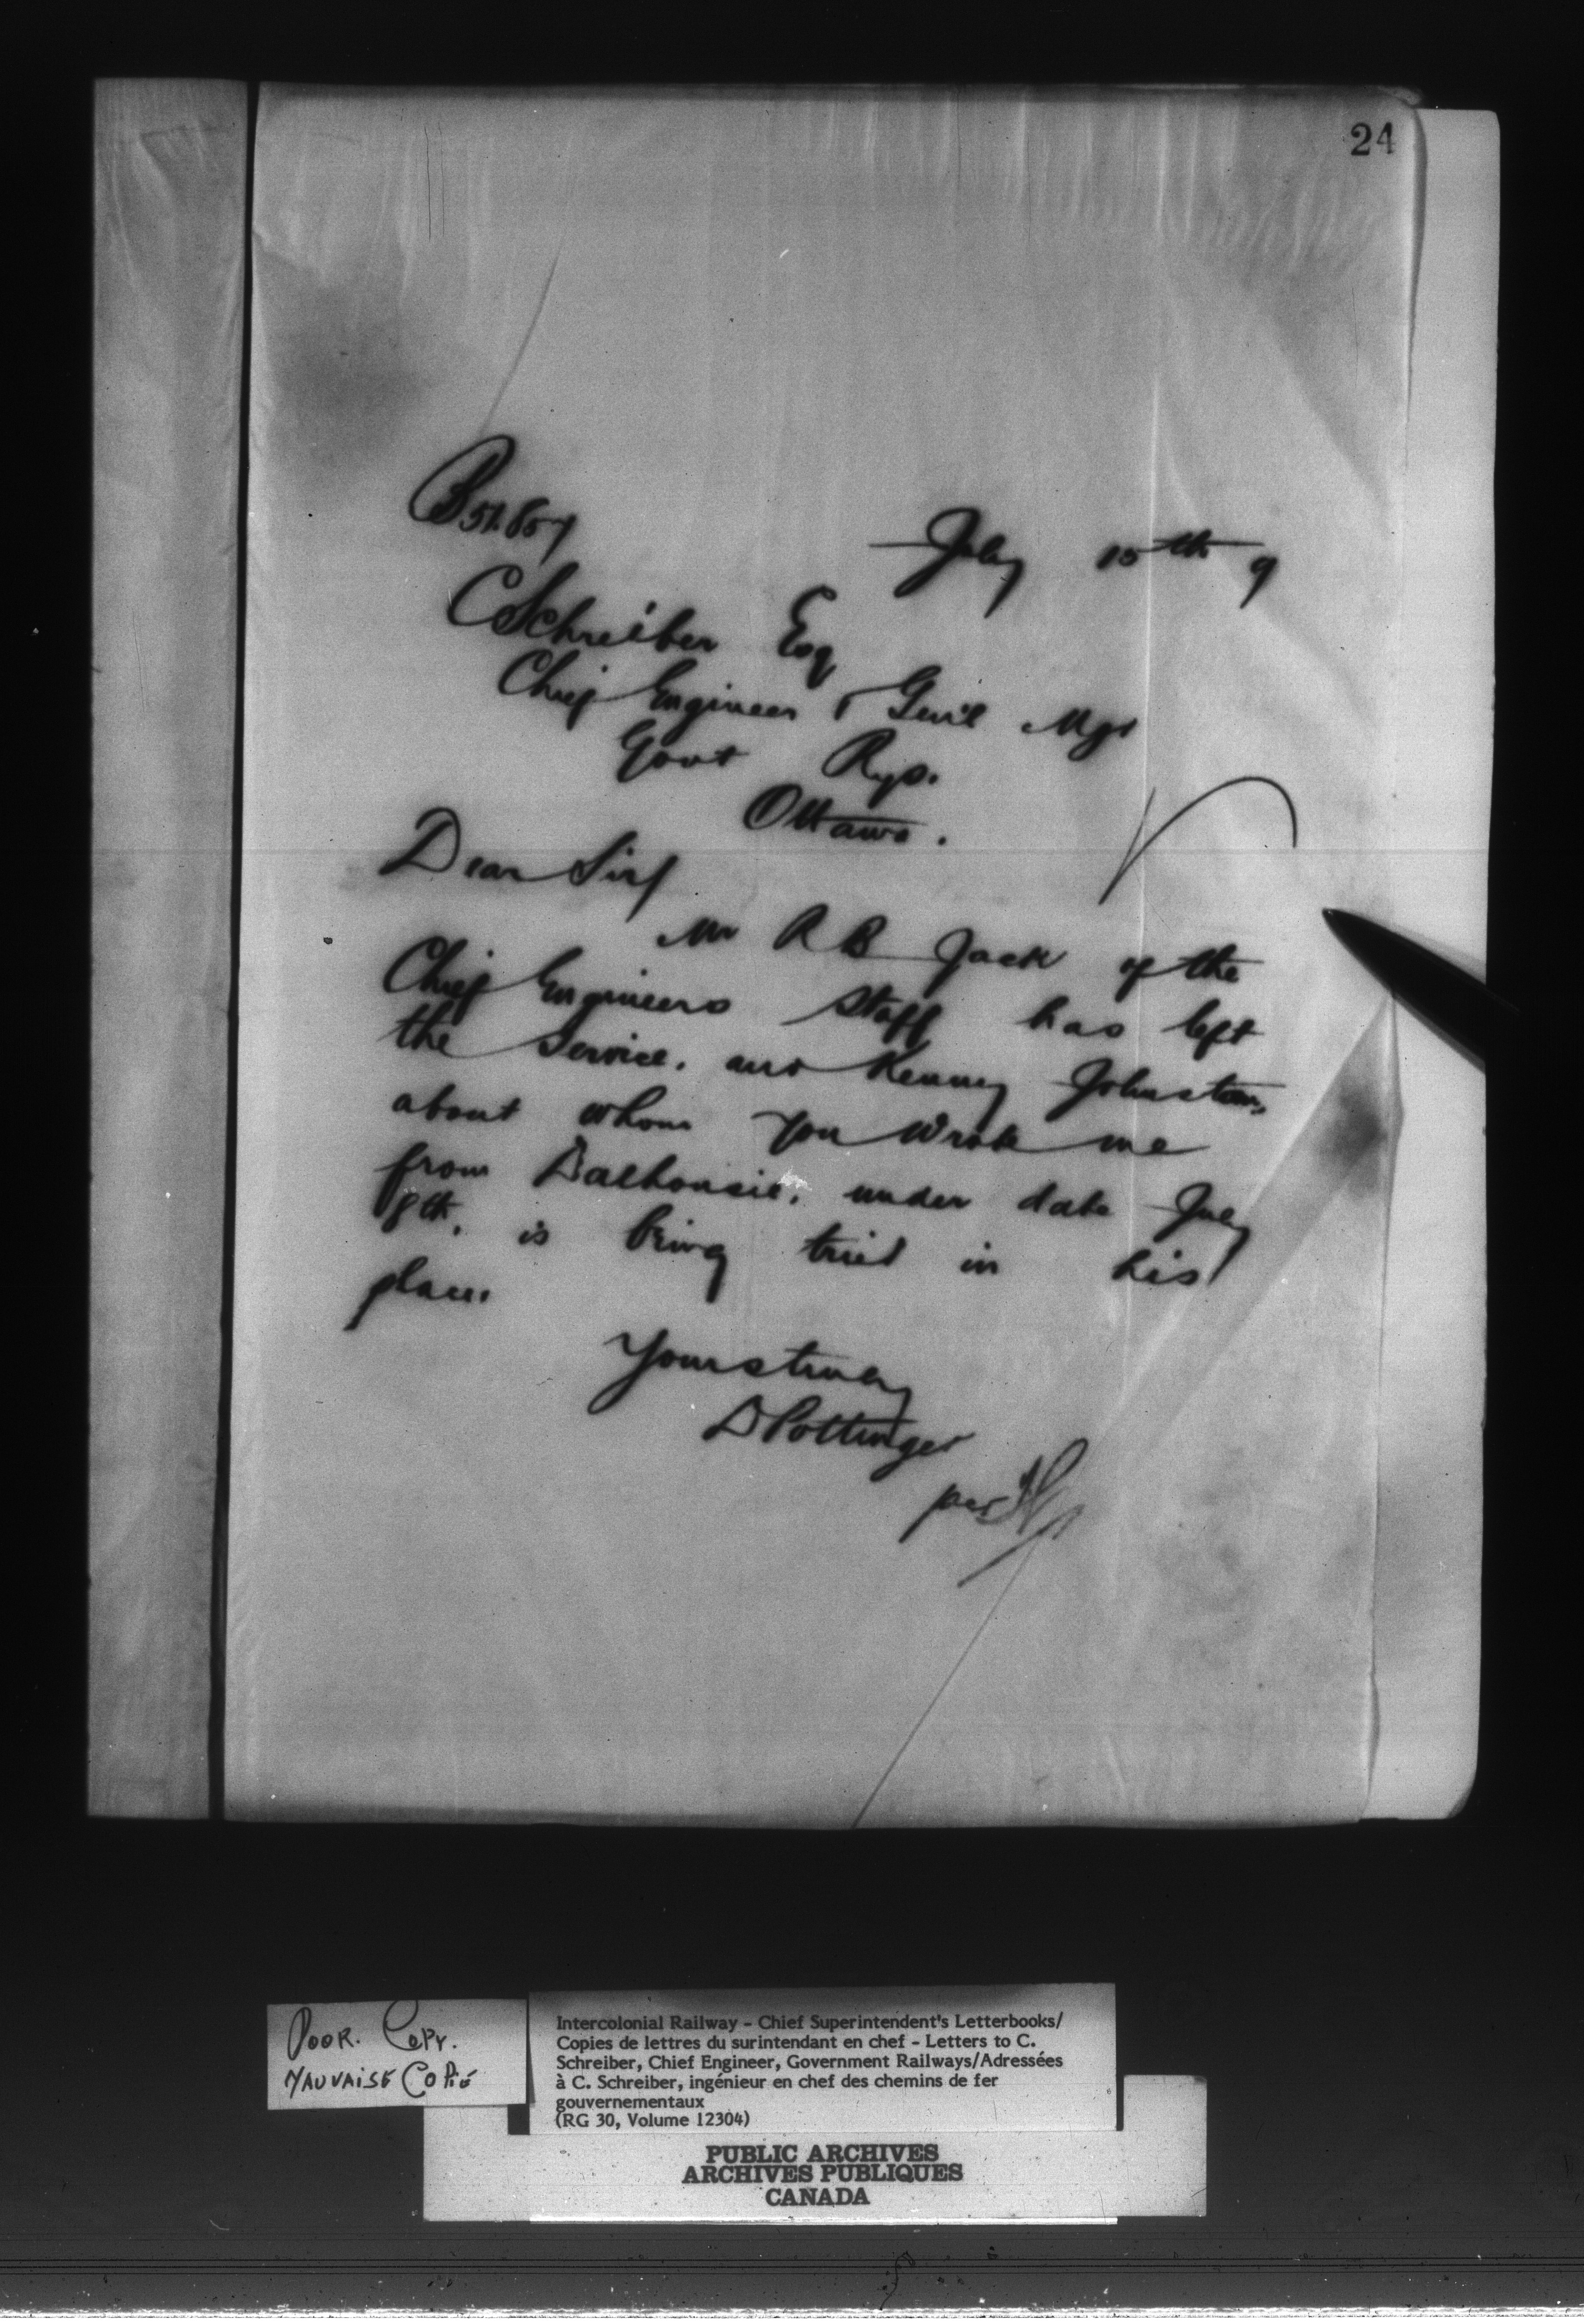 24
B 51.857
July 15th 9
C Schreiber Esq
Chief Engineer & Gen'l Mgr
Govt Rys.
Ottawa.
Dear Sir/
Mr R B Jack of the
Chief Engineers Staff has left
the Service. and Kenny Johnston,
about whom you wrote me
from Dalhousie. under date July
8th. is being tried in his
place.
Yours truly
D Pottinger
per
POOR. COPY.
MAUVAISE COPIE
Intercolonial Railway - Chief Superintendent's Letterbooks/
Copies de lettres du surintendant en chef - Letters to C.
Schreiber, Chief Engineer, Government Railways/Adressées
à C. Schreiber, ingénieur en chef des chemins de fer
gouvernementaux
(RG 30, Volume 12304)
PUBLIC ARCHIVES
ARCHIVES PUBLIQUES
CANADA